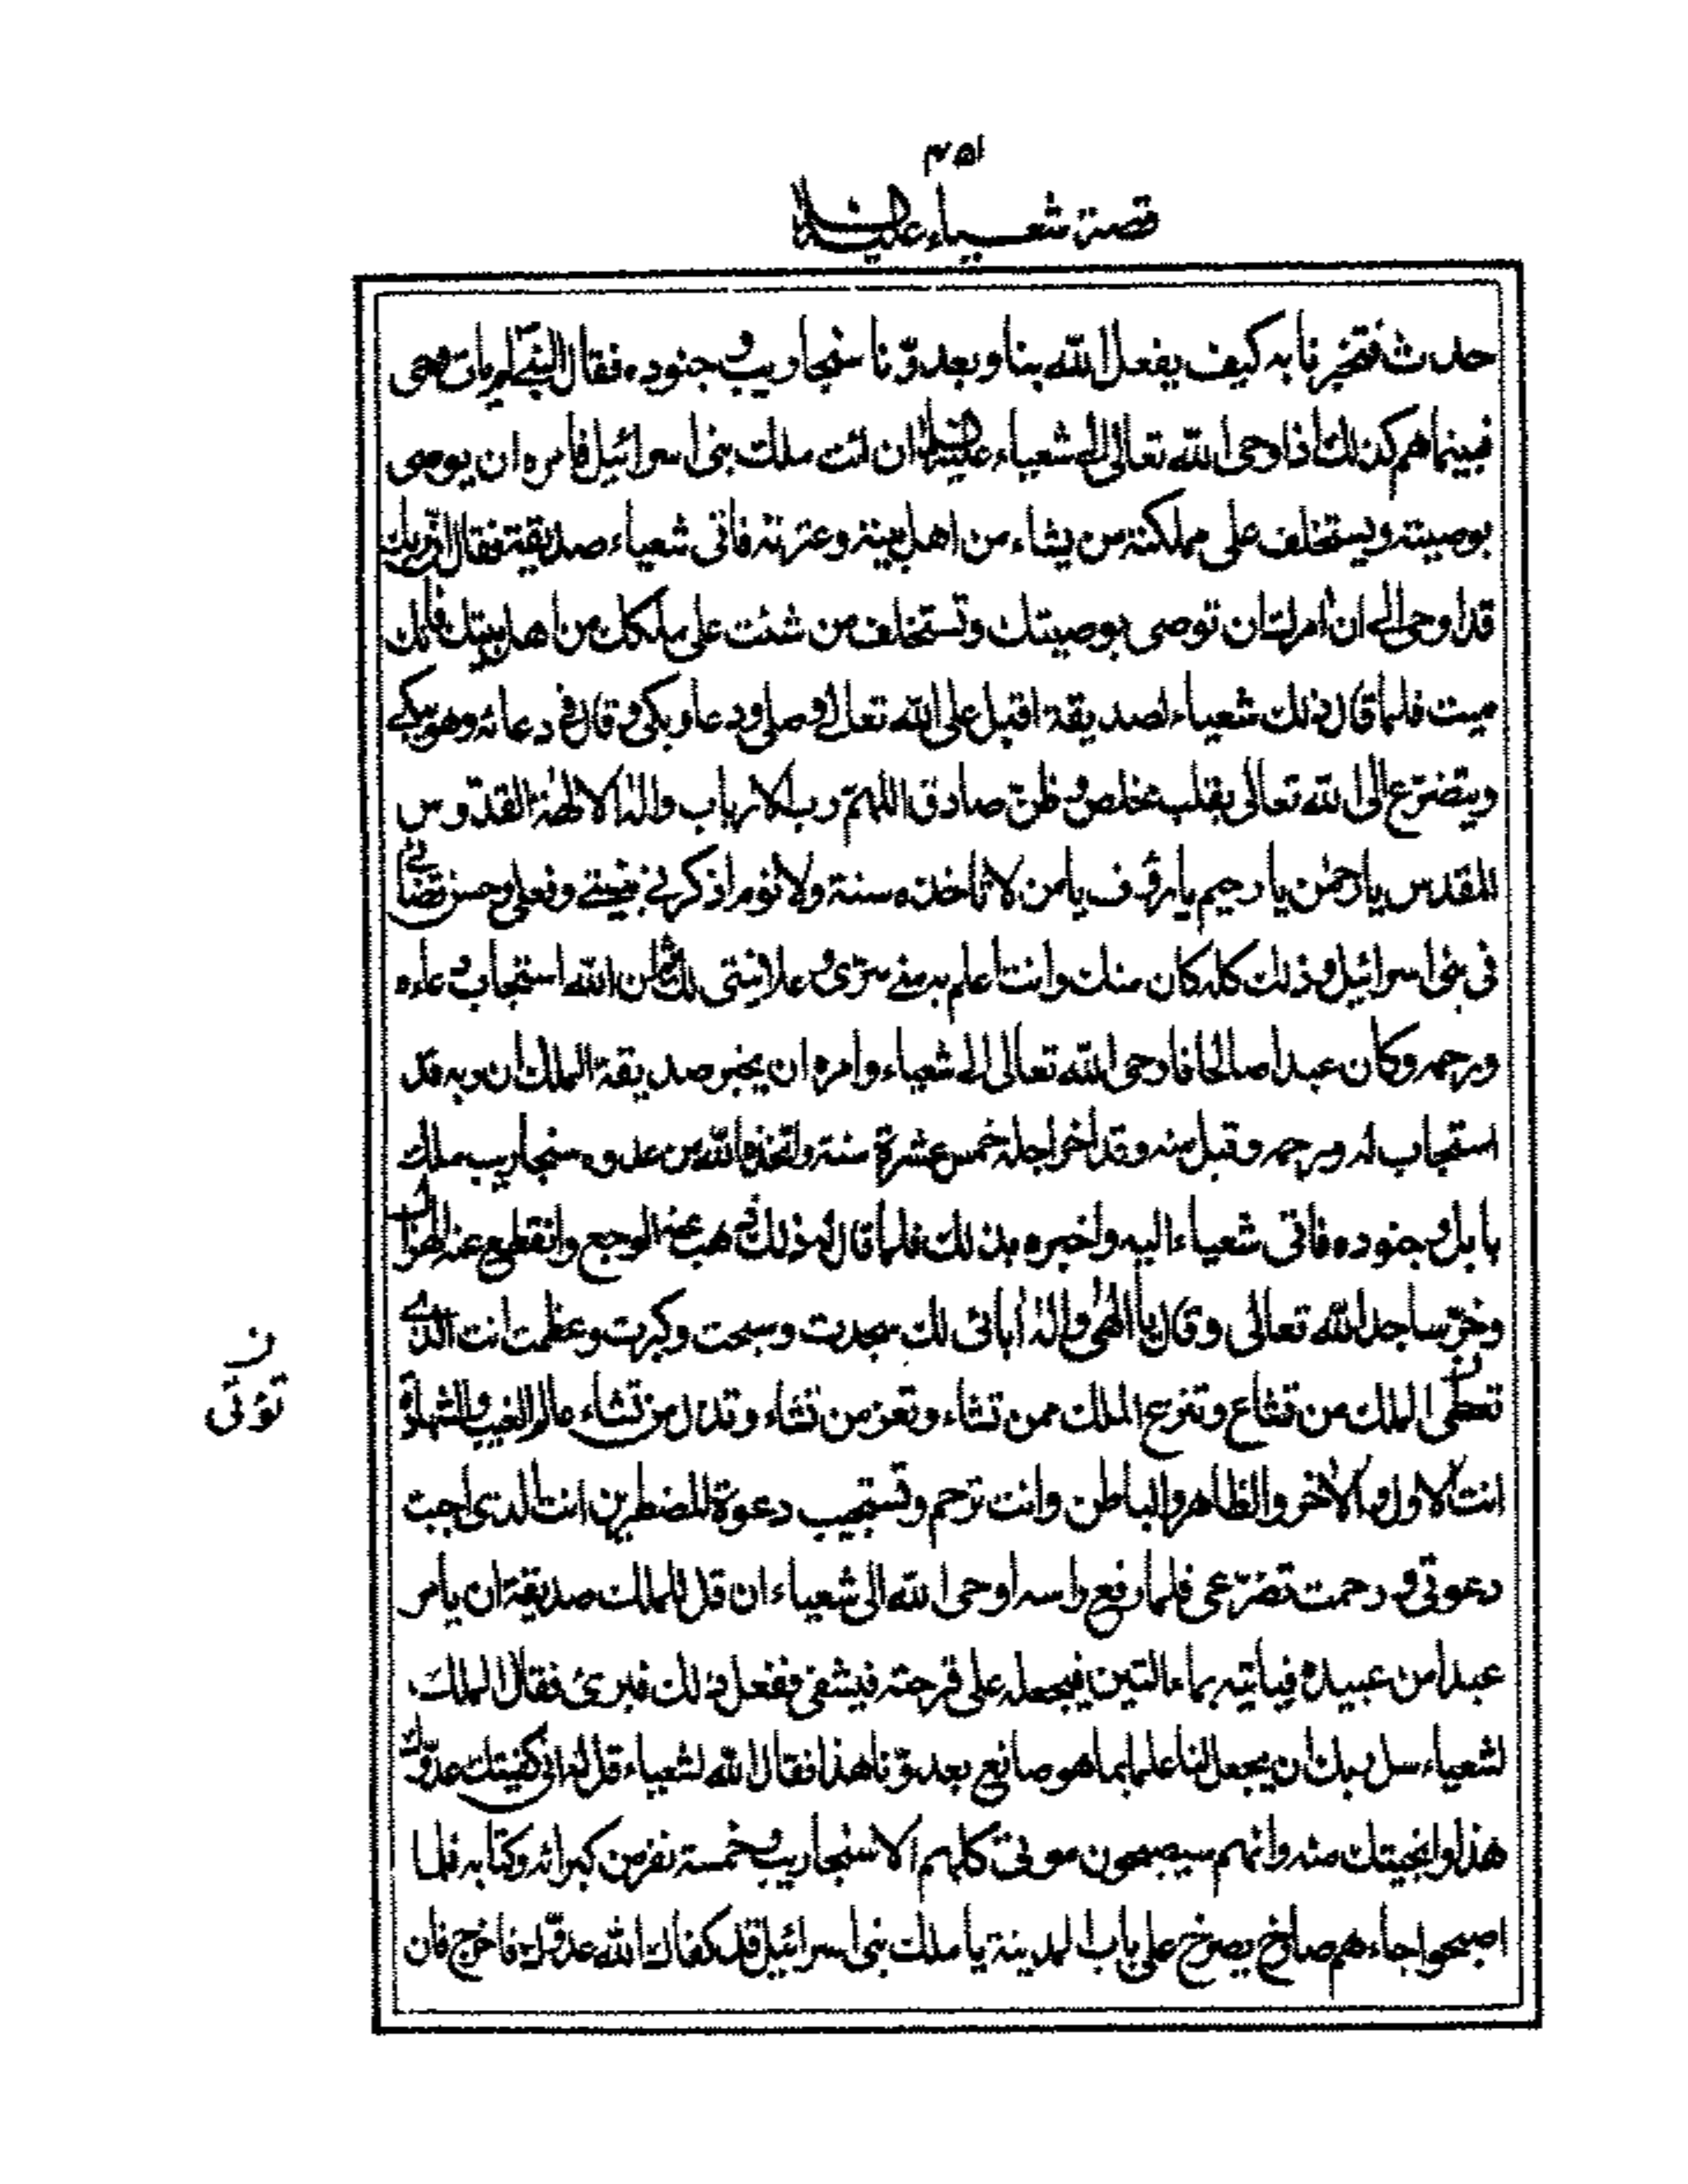 ٤٥١
قصة شعياء عليه السلام
حدث فتخبرنا به كيف يفعل الله بنا وبعدوّنا سنجاريب وجنوده فقال النبي لم يأت وحى
فبينماهم كذلك اذا وحى الله تعالى الى شعياء عليه السلام ان ائت ملك بنى اسرائيل فامره ان يوصى
بوصيته ويستخلف على مملكته من يشاء من اهل بيته وعترته فاتى شعياء صديقة فقال ان ربك
قد اوحى الى ان امرك ان توصى بوصيتك وتستخلف من شئت على ملكك من اهل بيتك فانك
ميت فلما قال ذلك شعياء لصديقة اقبل على الله تعالى وصلى ودعا وبكى وقال فى دعائه وهو يبكى
ويتضرّع الى الله تعالى بقلب مخلص وظنّ صادق اللهمّ رب الارباب واله الالهة القدّوس
المقدس يا رحمٰن يا رحيم يا رؤف يا من لا تاخذه سنة ولا نوم اذكرنى بنيتى وفعلى وحسن قضائى
فى بنى اسرائيل وذلك كله كان منك وانت اعلم به منى سرّى وعلانيتى لك ثم ان الله استجاب دعاءه
ورحمه وكان عبدا صالحا فاوحى الله تعالى الى شعياء وامره ان يخبر صديقة الملك ان ربه قد
استجاب له ورحمه وقبل منه وقد اخر اجله خمس عشرة سنة وانجاه الله من عدوه سنجاريب ملك
بابل وجنوده فاتى شعياء اليه واخبره بذلك فلما قال له ذلك ذهب عنه الوجع وانقطع عنه الحزن
وخرّ ساجدا لله تعالى وقال يا الٰهى واله اٰبائى لك سجدت وسبحت وكبرت وعظمت انت الذى
تعطى الملك من تشاء وتنزع الملك ممن تشاء وتعز من تشاء وتذل من تشاء عالم الغيب والشهادة
ن
تؤتى
انت الاول والاخر والظاهر والباطن وانت ترحم وتستجيب دعوة المضطرين انت الذى اجبت
دعوتى ورحمت تضرّعى فلما رفع راسه اوحى الله الى شعياء ان قل للملك صديقة ان يأمر
عبدا من عبيده فيأتيه بماء التين فيجعله على قرحته فيشفى ففعل ذلك فبرئ فقال الملك
لشعياء سل ربك ان يجعل لنا علما بما هو صانع بعدوّنا هذا فقال الله لشعياء قل له انى كفيتك عدوّك
هذا وانجيتك منه وانهم سيصبحون موتى كلهم الا سنجاريب وخمسة نفر من كبرائه وكتابه فلما
اصبحوا جاءهم صارخ يصرخ على باب المدينة يا ملك بنى اسرائيل قد كفاك الله عدوّك فاخرج فان